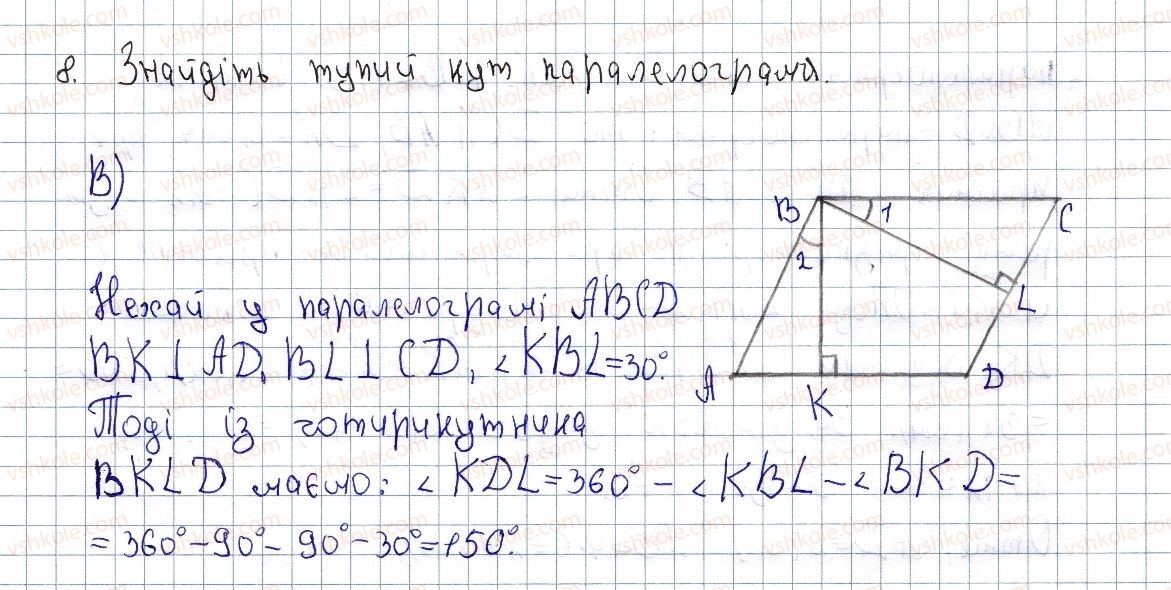 8. Знайдіть тупий кут паралелограма.
В)
Нехай у паралелограмі ABCD
BK⊥AD, BL⊥CD, ∠KBL=30°.
Тоді із чотирикутника
BKLD маємо: ∠KDL=360°-∠KBL-∠BKD=
=360°-90°-90°-30°=150°.
B 1 C
2
L
A K D